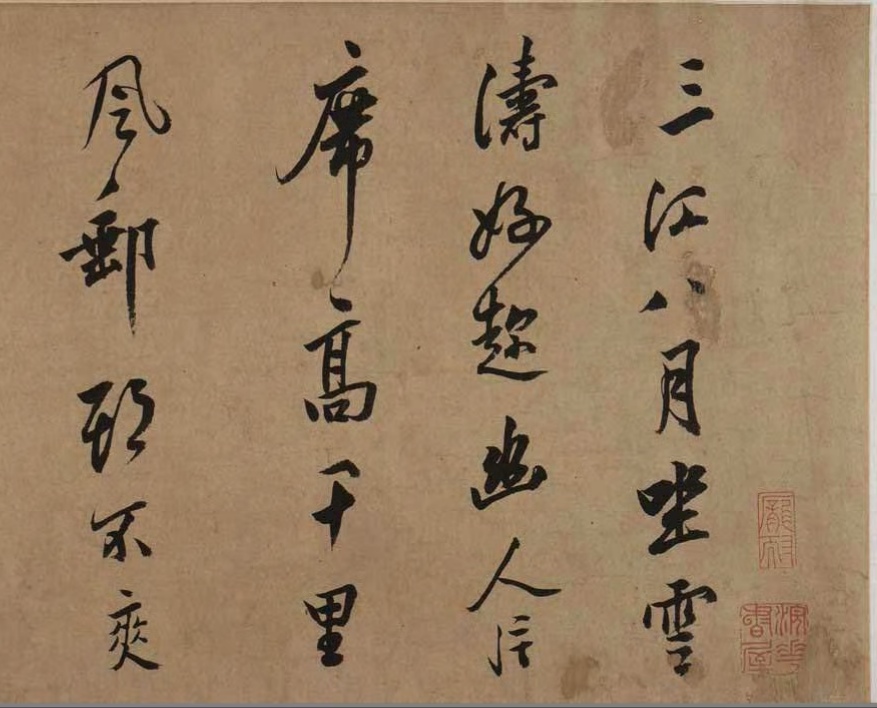 三江八月坐雲
濤好趁幽人張
席高千里
風郵期不爽